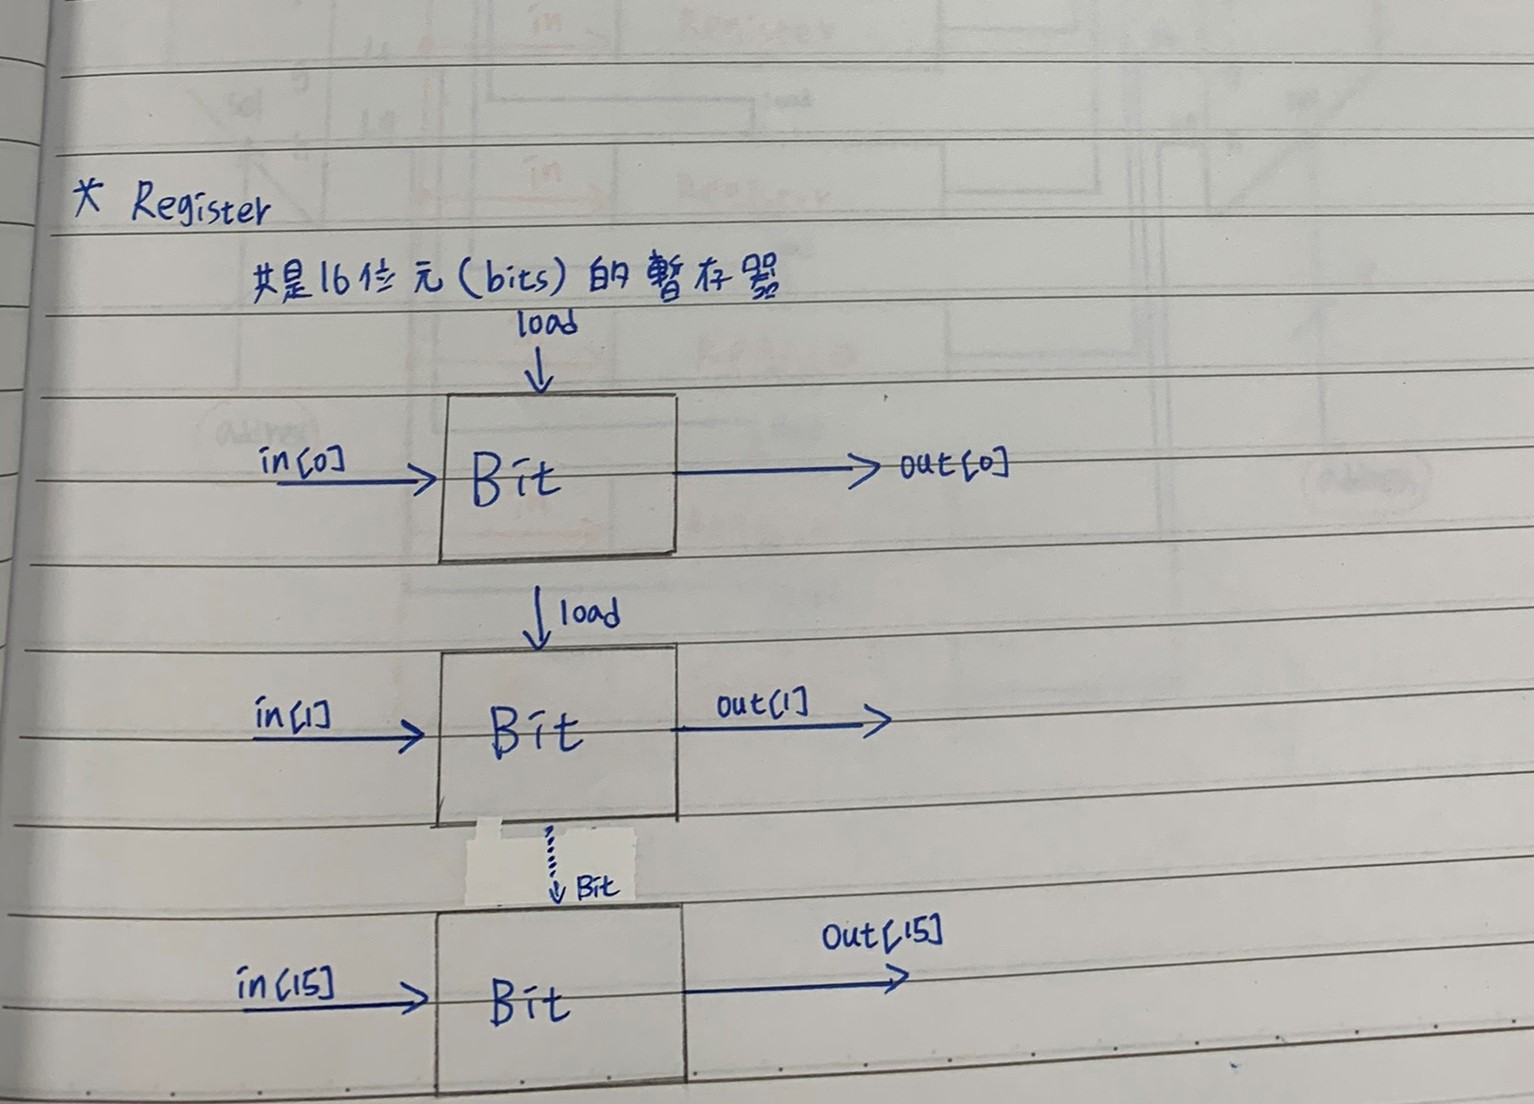 * Register
共是16位元(bits)的暫存器
load
in[0] Bit out[0]
load
in[1] Bit out[1]
Bit
in[15] Bit Out[15]